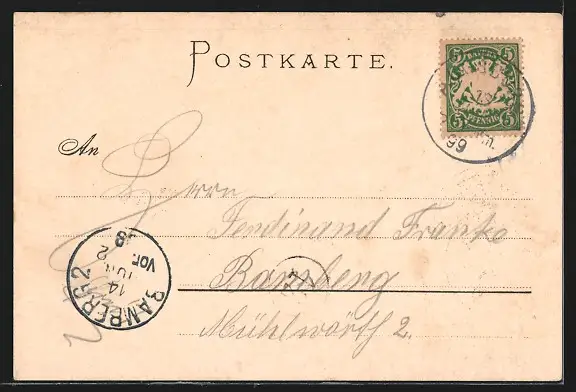 POSTKARTE.
5 BAYERN 5
5 PFENNIG 5
99
An
Herrn
Ferdinand Franke
Bamberg
Mühlwörth 2.
BAMBERG 2
14
JUN
VOR.